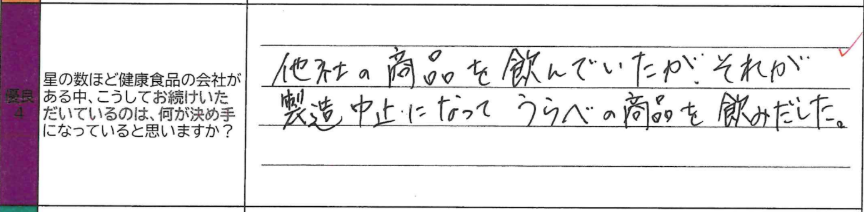 優良
4
星の数ほど健康食品の会社が
ある中、こうしてお続けいた
だいているのは、何が決め手
になっていると思いますか？
他社の商品を飲んでいたが、それが
製造中止になってうらべの商品を飲みだした。